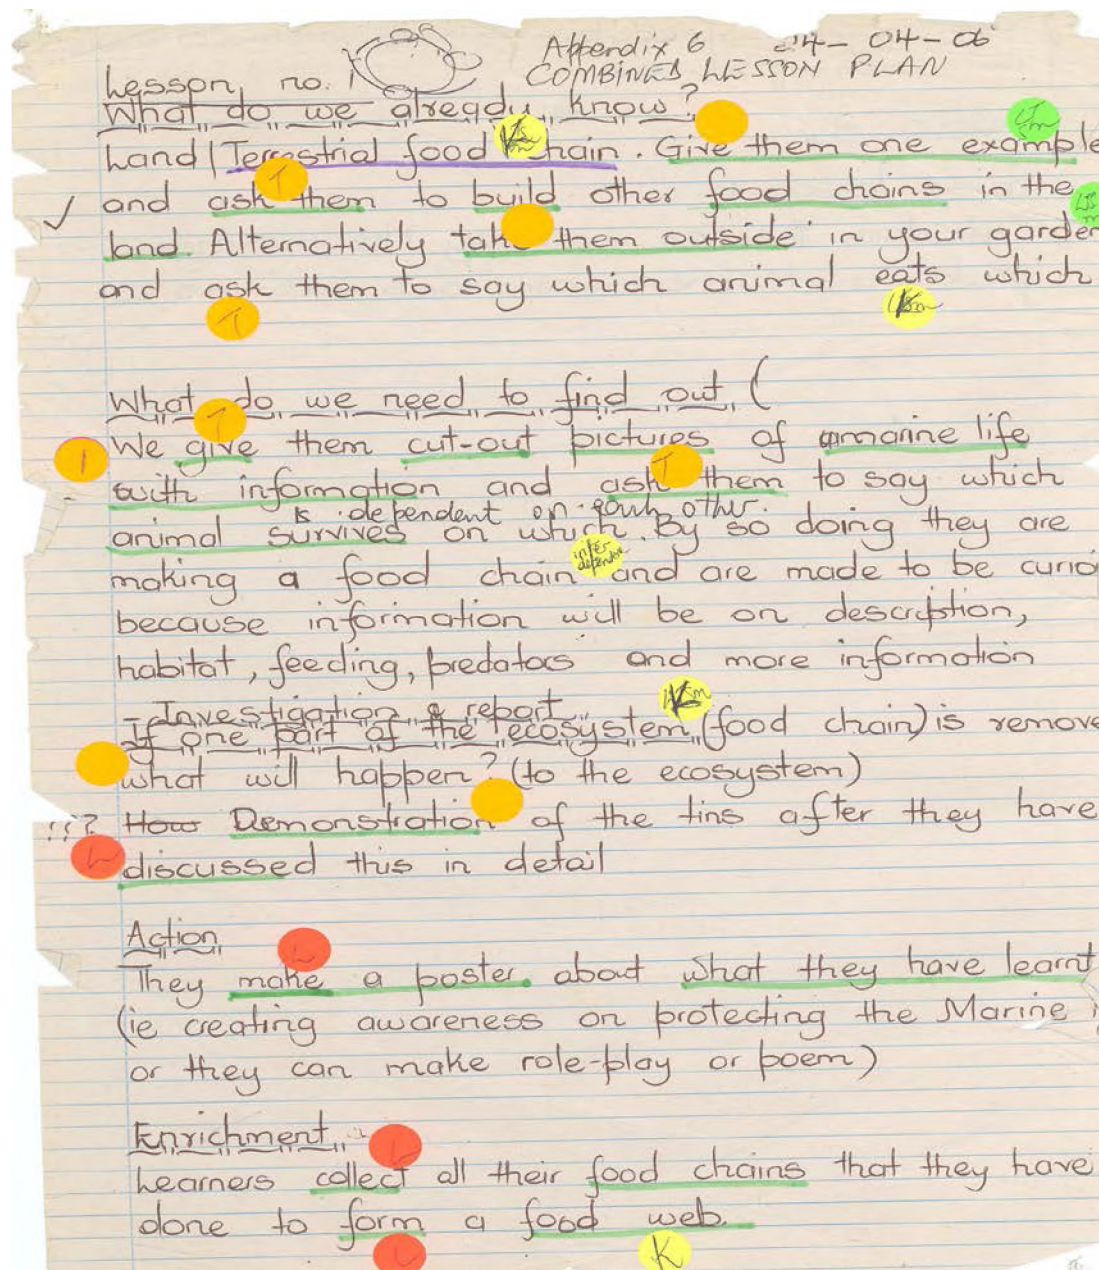 Appendix 6 24-04-06
COMBINED LESSON PLAN
Lesson no. 1
What do we already know?
Land / Terrestrial food chain. Give them one example
and ask them to build other food chains in the
land. Alternatively take them outside in your garden
and ask them to say which animal eats which
What do we need to find out (
We give them cut-out pictures of marine life
with information and ask them to say which
is dependent on each other.
animal survives on which. By so doing they are
inter
making a food chain and are made to be curio
because information will be on description,
habitat, feeding, predators and more information
- Investigation & report
If one part of the ecosystem (food chain) is remove
what will happen? (to the ecosystem)
!!? How Demonstration of the tins after they have
L discussed this in detail
Action
L
They make a poster about what they have learnt
(ie creating awareness on protecting the Marine
or they can make role-play or poem)
Enrichment
L
Learners collect all their food chains that they have
done to form a food web.
L K